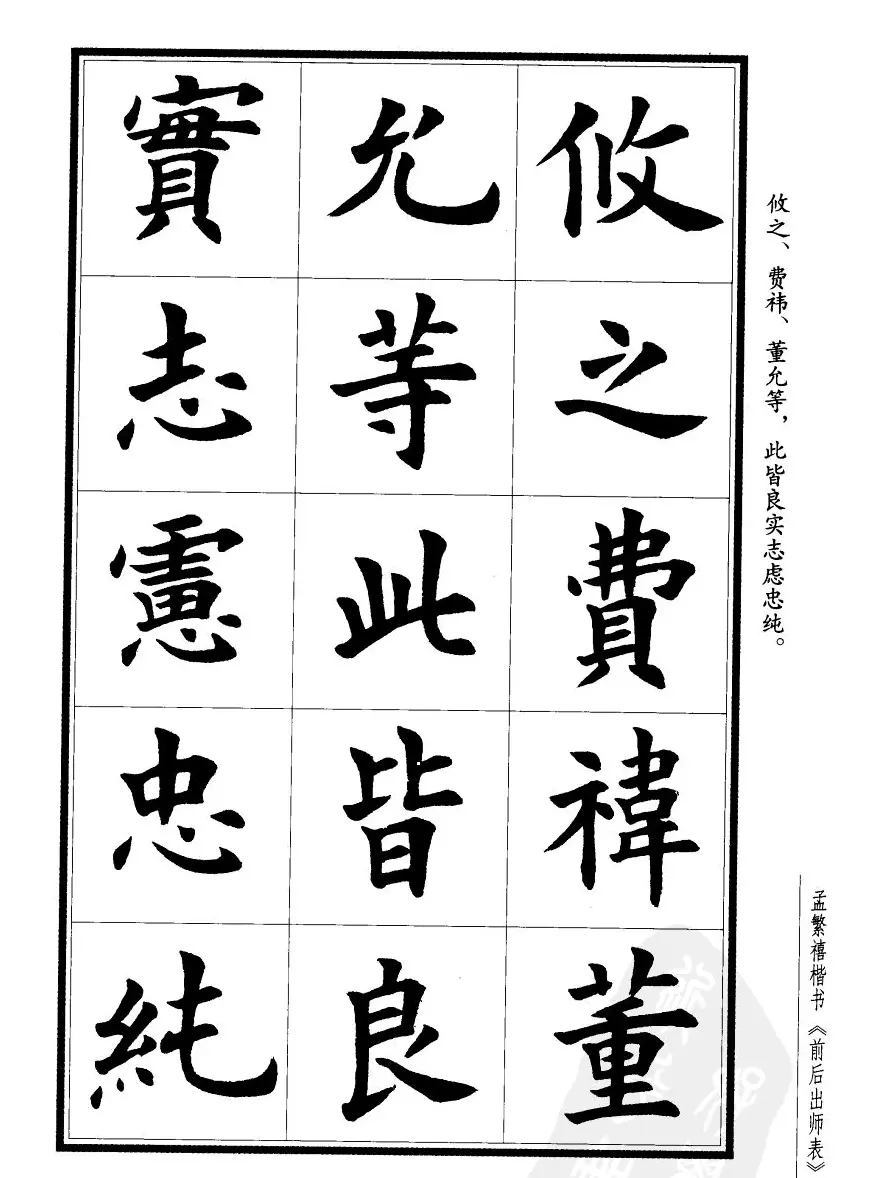 攸之費禕董
允等此皆良
實志慮忠純
攸之、费祎、董允等，此皆良实志虑忠纯。
孟繁禧楷书《前后出师表》